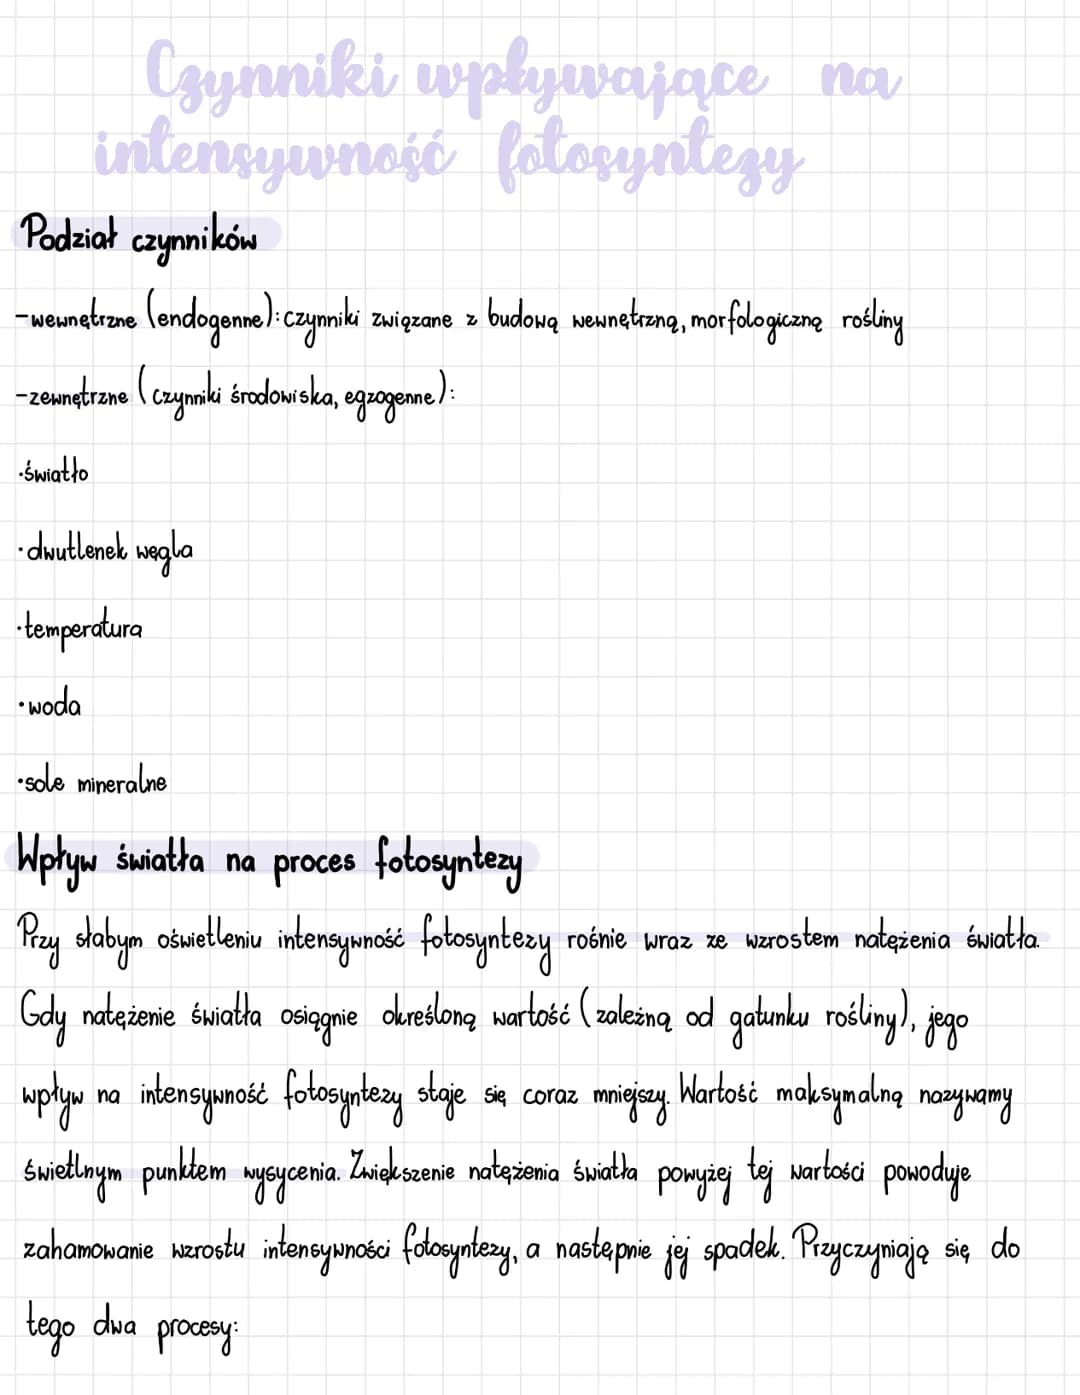 Czynniki wpływające na
intensywność fotosyntezy
Podział czynników
-wewnętrzne (endogenne): czynniki związane z budową wewnętrzną, morfologiczną rośliny
-zewnętrzne (czynniki środowiska, egzogenne):
·światło
·dwutlenek węgla
·temperatura
·woda
·sole mineralne
Wpływ światła na proces fotosyntezy
Przy słabym oświetleniu intensywność fotosyntezy rośnie wraz ze wzrostem natężenia światła.
Gdy natężenie światła osiągnie określoną wartość (zależną od gatunku rośliny), jego
wpływ na intensywność fotosyntezy staje się coraz mniejszy. Wartość maksymalną nazywamy
świetlnym punktem wysycenia. Zwiększenie natężenia światła powyżej tej wartości powoduje
zahamowanie wzrostu intensywności fotosyntezy, a następnie jej spadek. Przyczyniają się do
tego dwa procesy: